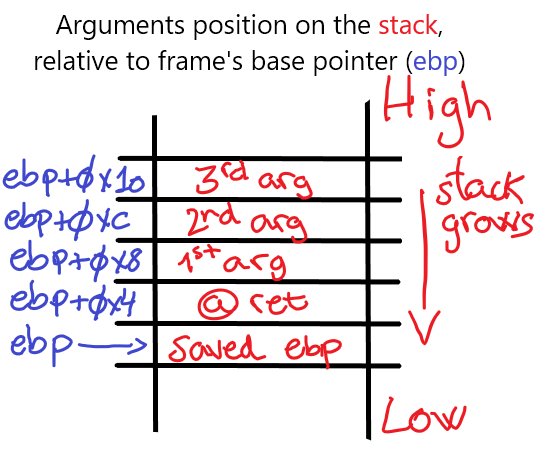 Arguments position on the stack,
relative to frame's base pointer (ebp)
High
ebp+0x10 3rd arg
stack
ebp+0xC 2nd arg
grows
ebp+0x8 1st arg
ebp+0x4 @ ret
ebp saved ebp
Low